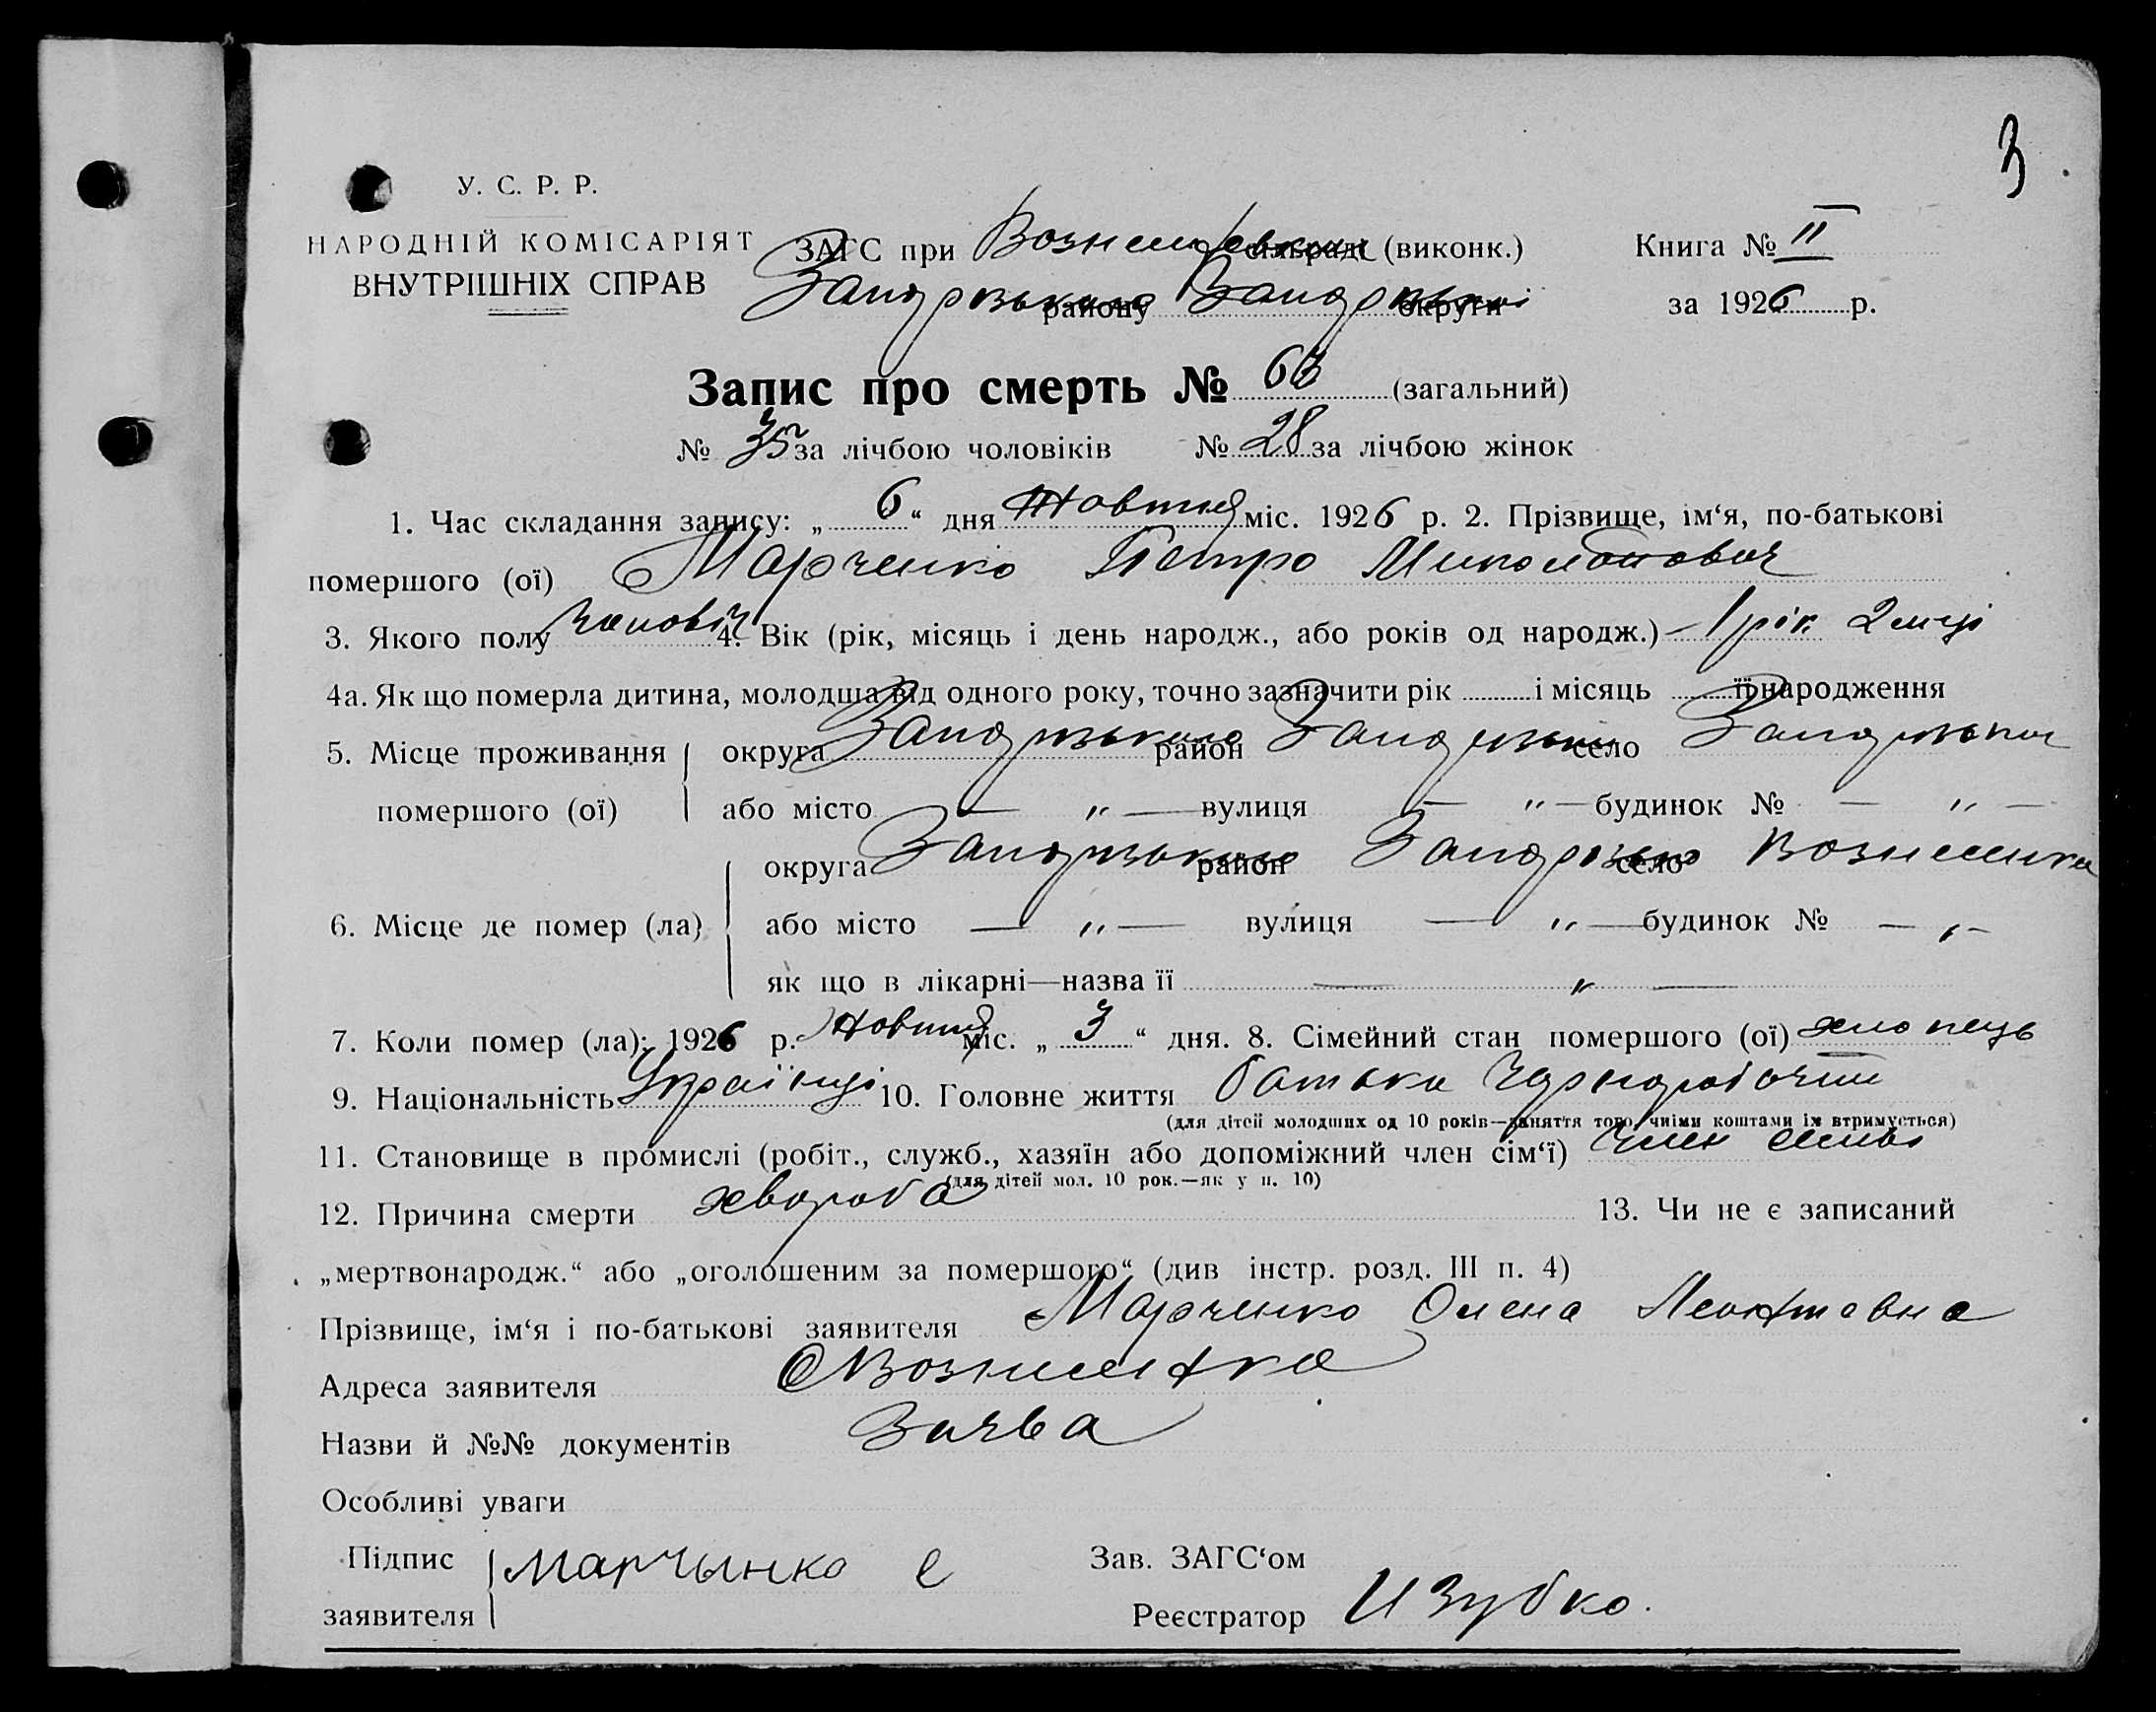 3
У. С. Р. Р.
НАРОДНІЙ КОМІСАРІЯТ
ВНУТРІШНІХ СПРАВ
ЗАГС при Вознесенській сільраді (виконк.) Книга № II
Запорізького району Запорізької округи за 1926 р.
Запис про смерть № 63 (загальний)
№ 35 за лічбою чоловіків № 28 за лічбою жінок
1. Час складання запису: „6“ дня Жовтня міс. 1926 р. 2. Прізвище, ім‘я, по-батькові
помершого (ої) Марченко Петро
3. Якого полу 4. Вік (рік, місяць і день народж., або років од народж.) – 1 рік 2 м-ці
4а. Як що померла дитина, молодша від одного року, точно зазначити рік і місяць її народження
5. Місце проживання округа район село
помершого (ої) або місто — „ — вулиця — „ — будинок № — „ —
округа район село Вознесенка
6. Місце де помер (ла) або місто — „ — вулиця — „ — будинок № — „ —
як що в лікарні—назва її — „ —
7. Коли помер (ла): 1926 р. Жовтня міс. „3“ дня. 8. Сімейний стан помершого (ої) хлопець
9. Національність Українці 10. Головне життя батька Чорноробочий
(для дітей молодших од 10 років—заняття того, чиїми коштами їх втримується)
11. Становище в промислі (робіт., служб., хазяїн або допоміжний член сім‘ї) член
(для дітей мол. 10 рок.—як у п. 10)
12. Причина смерти хвороба 13. Чи не є записаний
„мертвонародж.“ або „оголошеним за помершого“ (див інстр. розд. III п. 4)
Прізвище, ім‘я і по-батькові заявителя Марченко Олена
Адреса заявителя Вознесенка
Назви й №№ документів
Особливі уваги
Підпис Марчынко е Зав. ЗАГС‘ом
заявителя Реєстратор И Зубко.